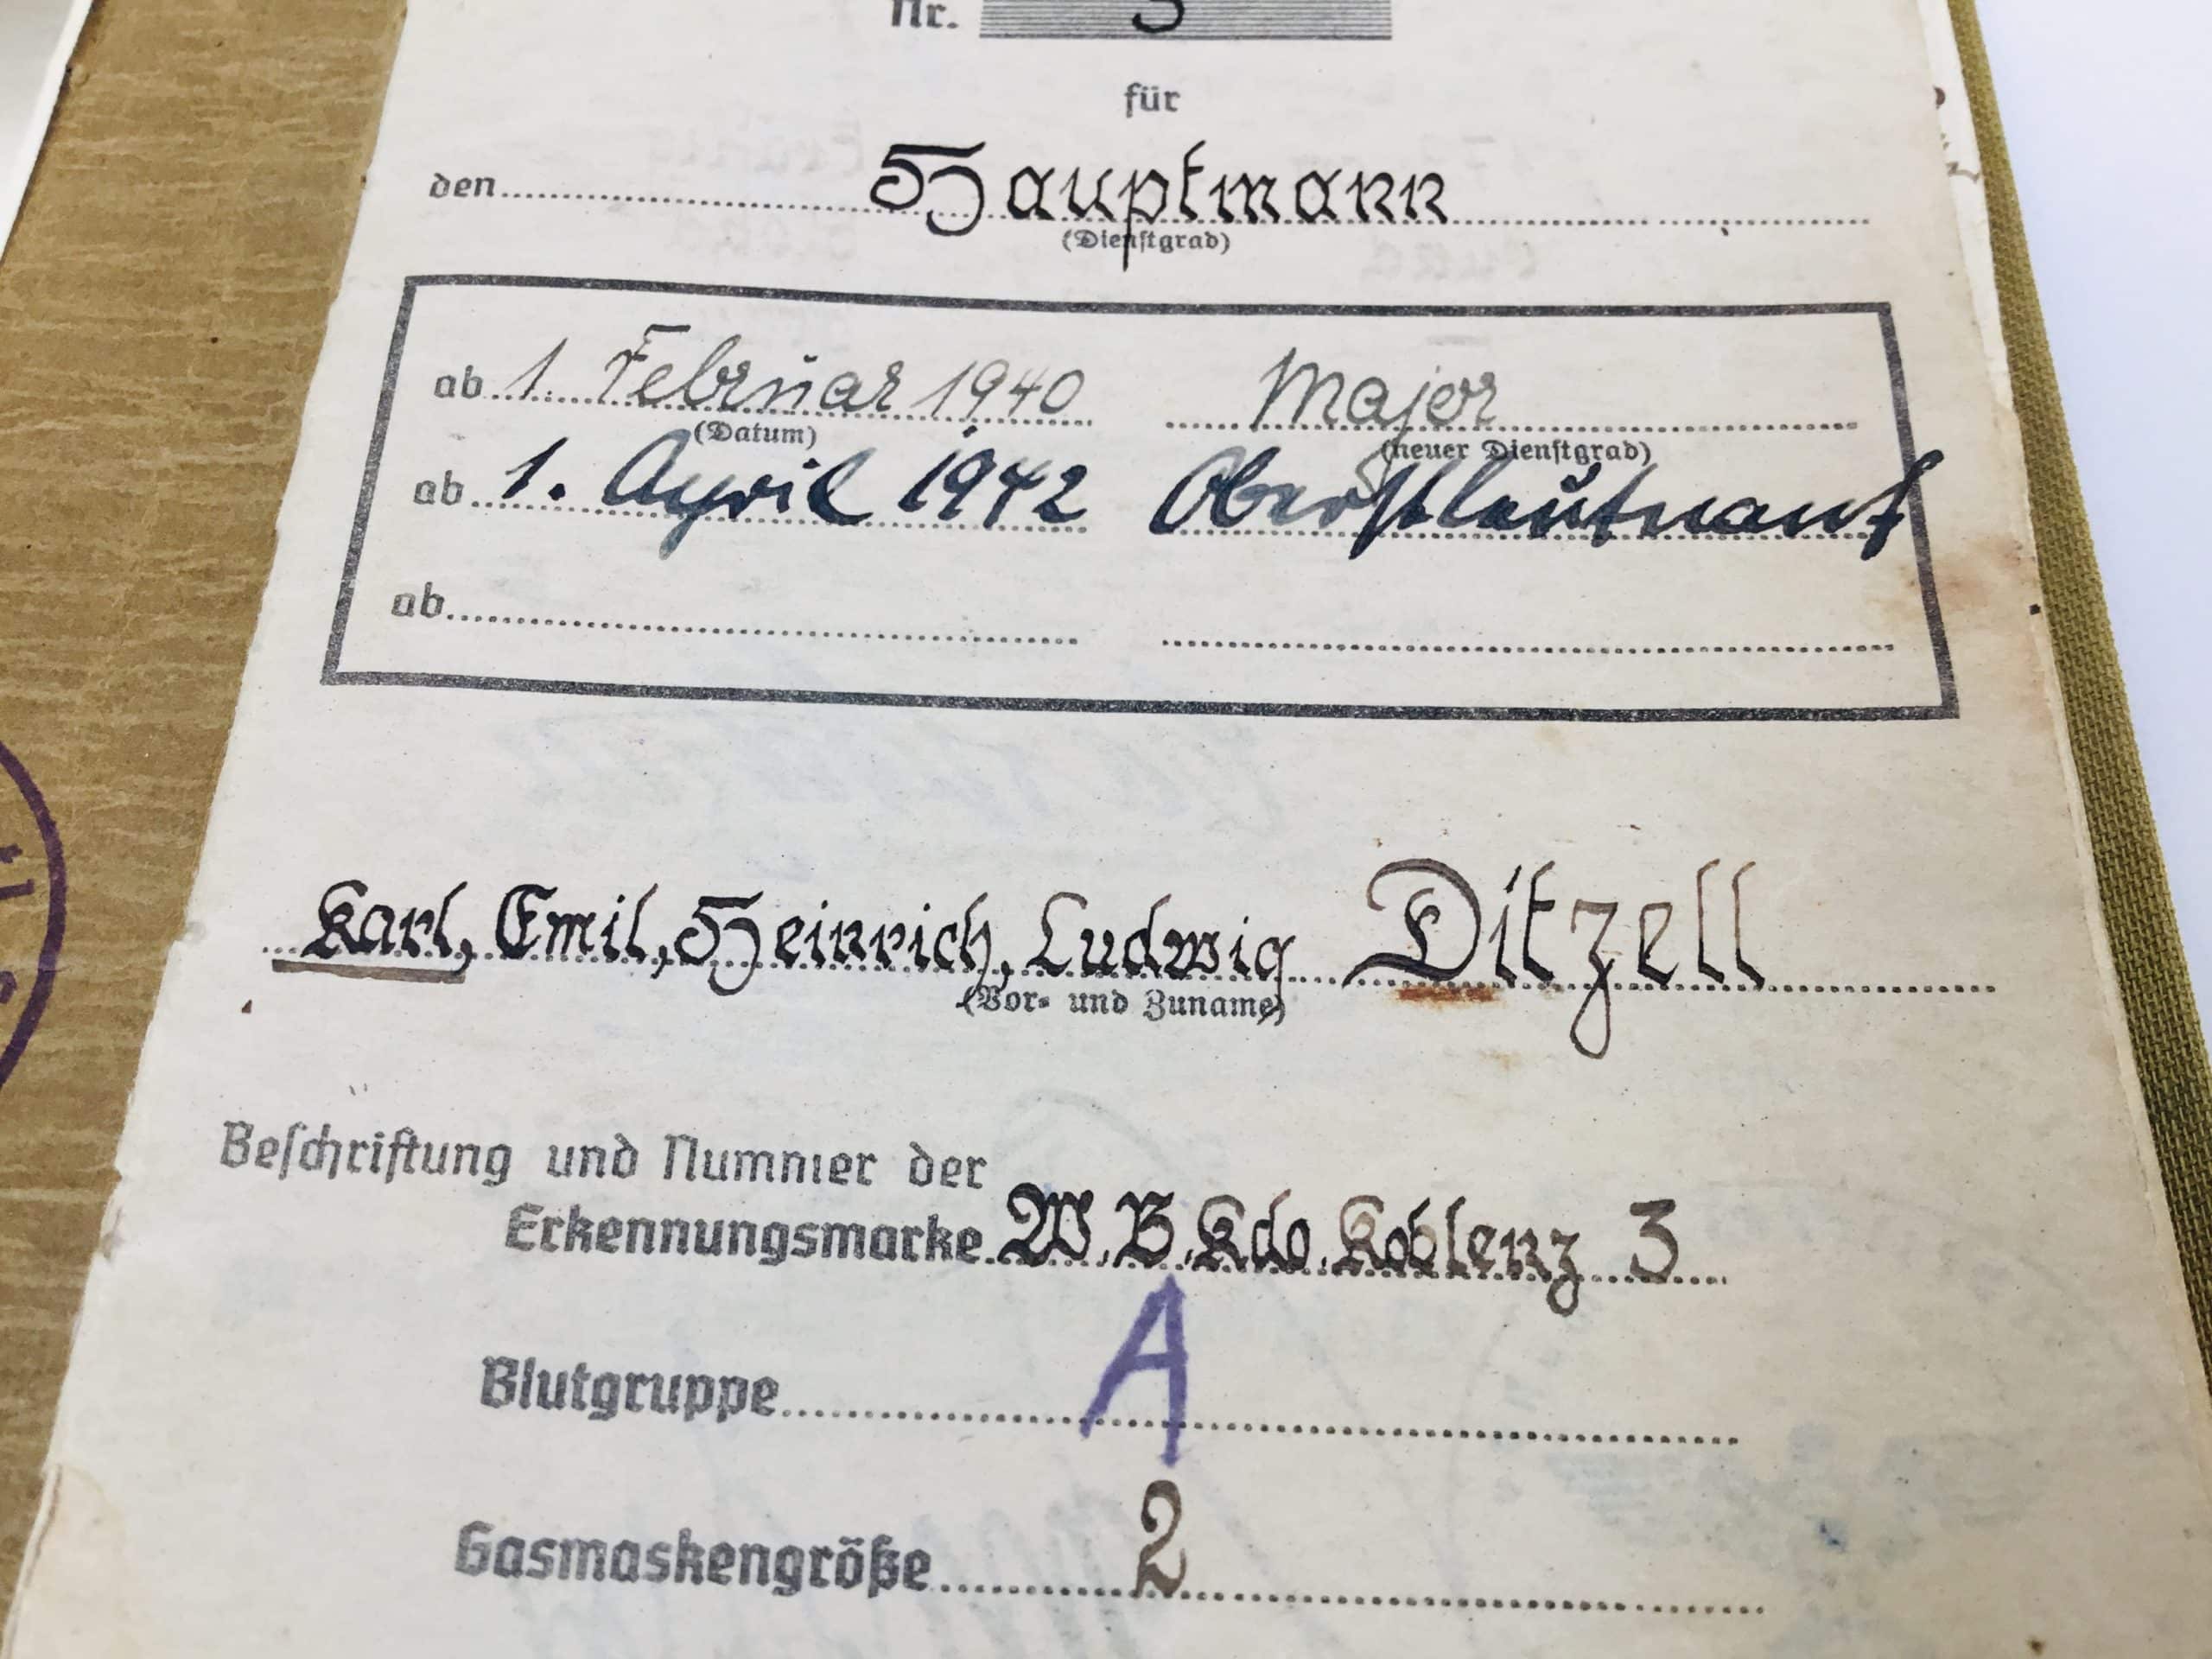 Nr. 3
für
den Hauptmann
(Dienstgrad)
ab 1. Februar 1940 Major
(Datum) (neuer Dienstgrad)
ab 1. April 1942 Oberstleutnant
ab
Karl, Emil, Heinrich, Ludwig Ditzell
(Vor- und Zuname)
Beschriftung und Nummer der
Erkennungsmarke W. B. Kdo. Koblenz 3
Blutgruppe A
Gasmaskengröße 2